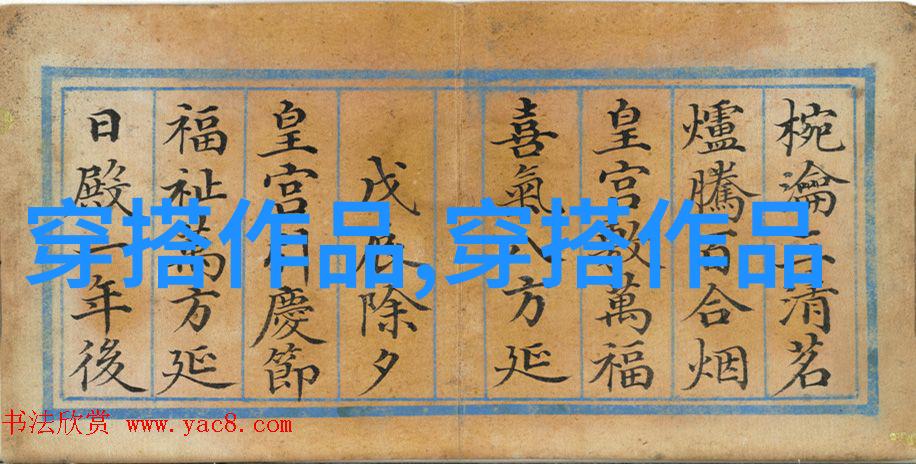 椀瀹三清茗
爐騰百合烟
皇宫敷萬福
喜氣八方延
戊辰除夕
皇宫慶節
福祉萬方延
日殿一年後
穿搭作品,穿搭作品
书法欣赏 www.yac8.com